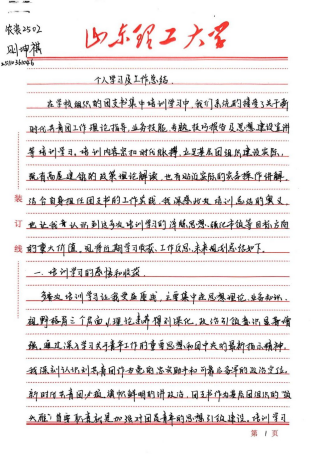 农发2502
山东理工大学
个人学习及工作总结
在学校组织的团支书集中培训学习中,我们系统的接受了关于新
时代共青团工作理论指导,业务技能,专题技巧报告及思想建设宣讲
等培训学习。培训内容紧扣时代脉搏,立足基层团组织建设实际,
既有高屋建瓴的政策理论解读,也有贴近实际的实务操作讲解。
结合自身担任团支书的工作实践,我深感此次培训总结的
也让我意识到这多次培训学习的思想、强化
的重大价值。现将近期学习收获、工作反思、未来规划总结如下。
一、培训学习的感悟和收获
多次培训学习让我受益匪浅,主要集中在思想理论、业务知识、
视野格局三个层面,理论素养得到深化,政治引领意识显著增
强。通过深入学习关于青年工作的重要思想和团中央的最新指示精神,
我深刻认识到共青团作为党的忠实助手和可靠后备军的政治定位。
新时代共青团必须旗帜鲜明的讲政治,团支书作为基层团组织的
首要职责就是加强对团员青年的思想引领建设。培训学习
装
订
线
第 1 页